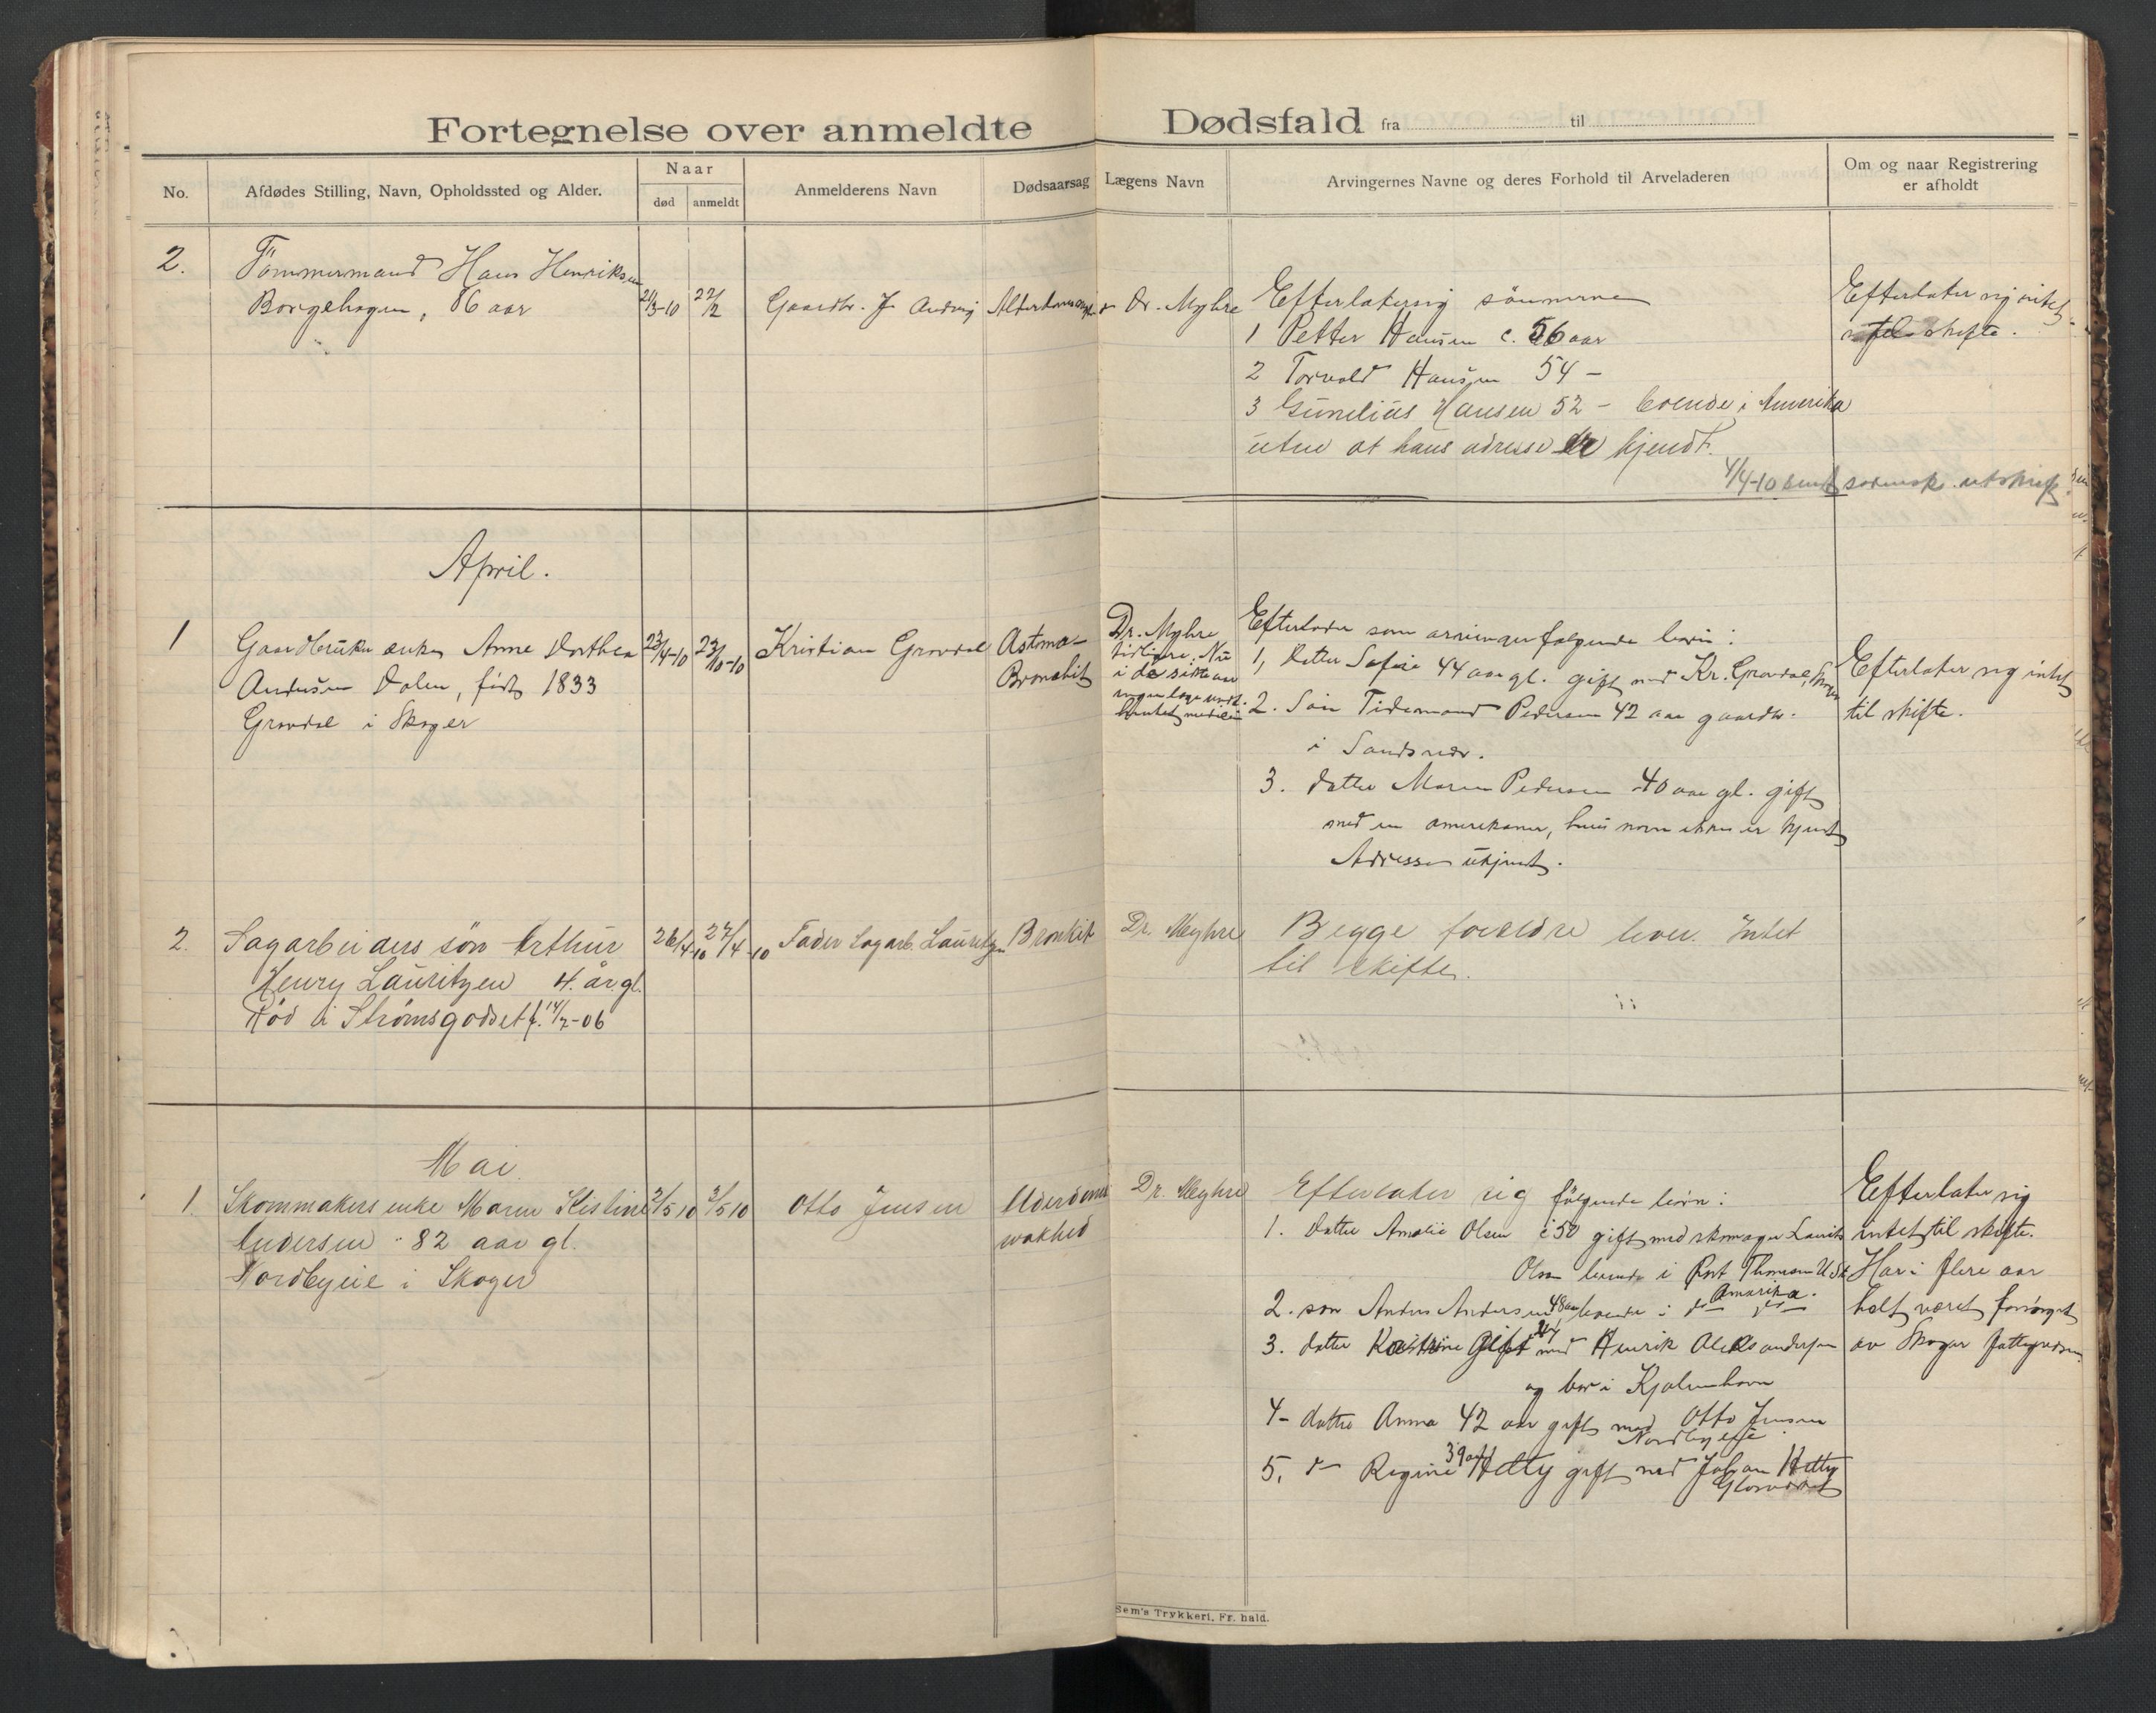 Fortegnelse over anmeldte Dødsfald fra til
No.
Afdødes Stilling, Navn, Opholdssted og Alder.
Naar
død anmeldt
Anmelderens Navn
Dødsaarsag
Lægens Navn
Arvingernes Navne og deres Forhold til Arveladeren
Om og naar Registrering
er afholdt
2.
Tømmermand Hans Henriksen
Borgehagen, 86 aar
21/3-10
Gaardbr. J. Andvig
Dr. Myhre
Efterlater sig sønnerne
1 Petter Hansen c. 56 aar
2 Torvald Hansen 54 -
3 Gunelius Hansen 52 - boende i Amerika
uten at hans adresse er kjendt.
Efterlater sig intet
til skifte.
4/4-10 sendt sorensk. utskrift
April.
1
Gaardbruker enke Anne Dorthea
Andersen Dalen, født 1833
Grovdal i Skoger
23/4-10
23/10-10
Kristian Grovdal
Astma-
Bronchit
Dr. Myhre
tidligere. Nu
i de siste aar
ingen læge undt.
hentet medicin
Efterlader som arvinger følgende børn:
1, Datter Sofie 44 aar gl. gift med Kr. Grovdal, Skoger
2. Søn Tidemand Pedersen 42 aar gaardbr.
i Sandsvær.
3. datter Maren Pedersen 40 aar gl. gift
med en amerikaner, hvis navn ikke er kjendt
Adressen ukjendt.
Efterlater sig intet
til skifte.
2.
Sagarbeiders søn Arthur
Henry Lauritzen 4. år gl.
Rød i Strømsgodset f. 14/7-06
26/4-10
27/4-10
Fader Sagarb. Lauritzen
Bronkit
Dr. Myhre
Begge foreldre lever. Intet
til skifte.
Mai.
1.
Skommakers enke Maren Kistine
Andersen 82 aar gl.
Nordbyeie i Skoger
2/5 10
3/5 10
Otto Jensen
Alderdoms
svakhed
Dr. Myhre
Efterlater sig følgende børn:
1. Datter Amalie Olsen c 50 gift med skomager Laurits
Olsen boende i Port Thomson U.St.
Amerika.
2. søn Anders Andersen 48 aar boende i do do
3. datter Katrine gift med Henrik Aleksandersen
og bor i Kjøbenhavn
4- datter Anna 42 aar gift med Otto Jensen
Nordbyeie
5. do Regine 39 aar Hetty gift med Johan Hetty
Efterlater sig
intet til skifte.
Har i flere aar
helt været forsørget
av Skoger fattigvæsen.
Sem's Trykkeri, Fr. hald.